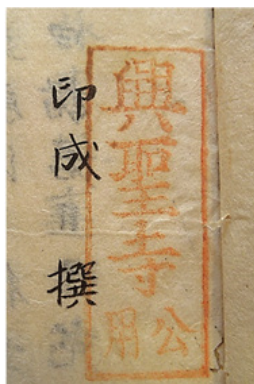 興聖寺
公用
印成 撰